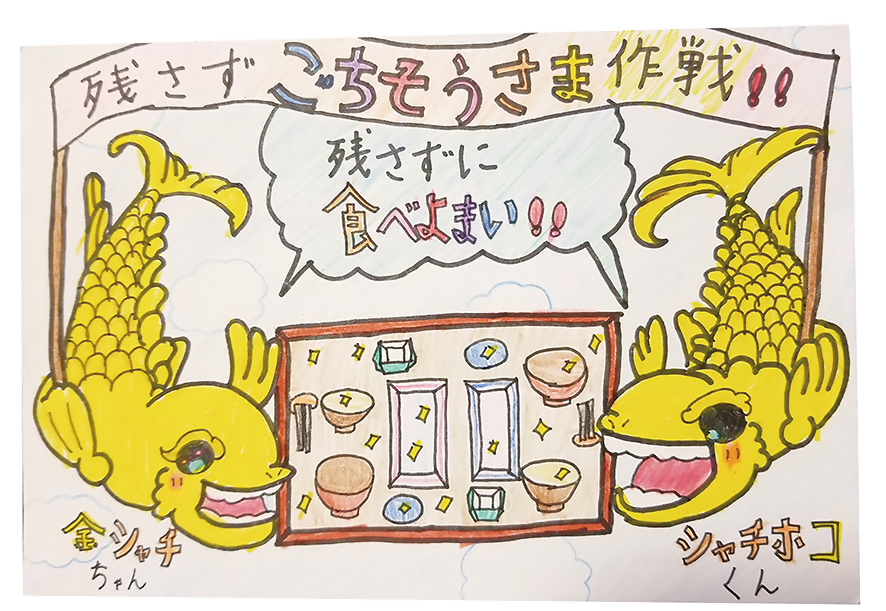 残さずごちそうさま作戦!!
残さずに
食べよまい!!
金シャチ
ちゃん
シャチホコ
くん